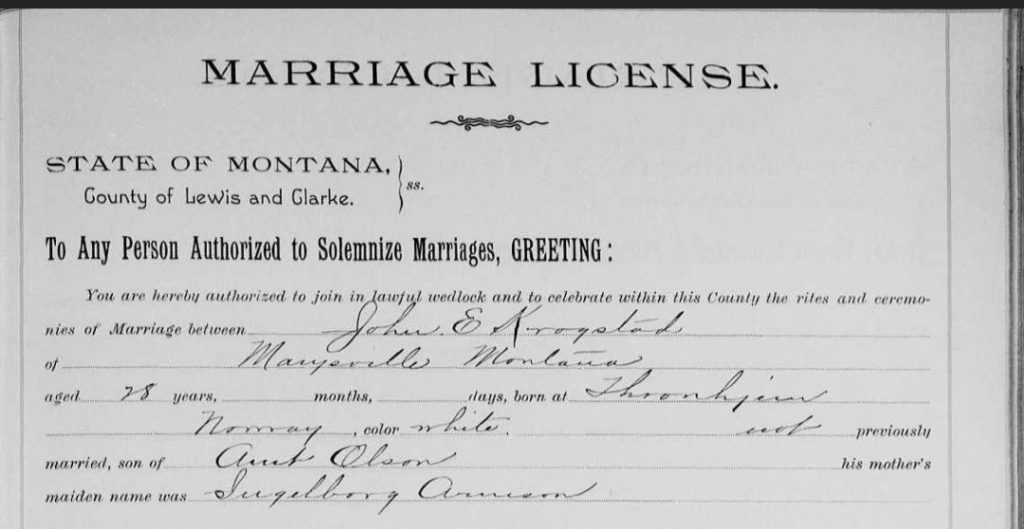 MARRIAGE LICENSE.
STATE OF MONTANA,
County of Lewis and Clarke. } ss.
To Any Person Authorized to Solemnize Marriages, GREETING:
You are hereby authorized to join in lawful wedlock and to celebrate within this County the rites and ceremo-
nies of Marriage between John E Krogstad
of Marysville Montana
aged 28 years, months, days, born at Throonhjem
Norway, color white. not previously
married, son of Arnt Olson his mother's
maiden name was Ingelborg Arneson